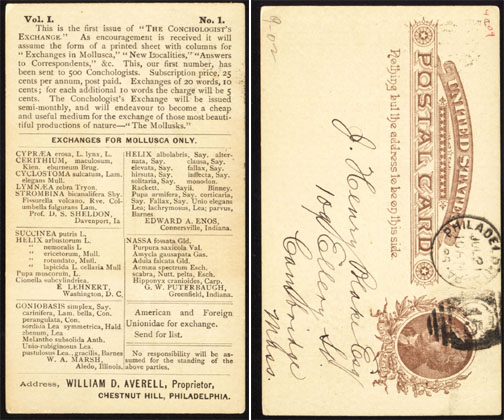 Vol. I. No. 1.
This is the first issue of "THE CONCHOLOGIST'S
EXCHANGE." As encouragement is received it will
assume the form of a printed sheet with columns for
"Exchanges in Mollusca," "New Localities," "Answers
to Correspondents," &c. This, our first number, has
been sent to 500 Conchologists. Subscription price, 25
cents per annum, post paid. Exchanges of 20 words, 10
cents; for each additional 10 words the charge will be 5
cents. The Conchologist's Exchange will be issued
semi-monthly, and will endeavour to become a cheap
and useful medium for the exchange of those most beauti-
ful productions of nature—"The Mollusks."
EXCHANGES FOR MOLLUSCA ONLY.
CYPRÆA erosa, L. lynx, L.
CERITHIUM, maculosum,
Kien. eburneum Brug.
CYCLOSTOMA sulcatum, Lam.
elegans Mull.
LYMNÆA zebra Tryon.
STROMBINA bicanalifera Sby.
Fissurella volcano, Rve. Col-
umbella fulgurans Lam.
Prof. D. S. SHELDON,
Davenport, Ia
SUCCINEA putris L.
HELIX arbustorum L.
" nemoralis L
" ericetorum, Mull.
" rotundato, Mull.
" lapicida L. cellaria Mull
Pupa muscorum, L.
Cionella subcylindrica.
E. LEHNERT,
Washington, D. C.
GONIOBASIS simplex, Say.
carinifera, Lam. bella, Con.
perangulata, Con.
sordida Lea symmetrica, Hald
ebenum Lea
Melantho subsolida Anth.
Unio-rubiginosus Lea.
pustulosus Lea., gracilis, Barnes
W. A. MARSH,
Aledo, Illinois.
HELIX albolabris, Say, alter-
nata, Say, clausa, Say,
elevata, Say, fallax, Say,
hirsuta, Say, inflecta, Say,
solitaria, Say, monodon.
Rackett. Sayii. Binney.
Pupa armifera, Say, corticaria,
Say, fallax, Say. Unio elegans
Lea; lachrymosus, Lea; parvus,
Barnes
EDWARD A. ENOS,
Connersville, Indiana.
NASSA fossata Gld.
Purpura saxicola Val.
Amycla gausapata Gas.
Adula falcata Gld.
Acmæa spectrum Esch.
scabra, Nutt, pelta, Esch.
Hipponyx cranioides, Carp.
G. W. PUTERBAUGH,
Greenfield, Indiana.
American and Foreign
Unionidae for exchange.
Send for list.
No responsibility will be as-
sumed for the standing of the
above parties.
Address, WILLIAM D. AVERELL, Proprietor,
CHESTNUT HILL, PHILADELPHIA.
UNITED STATES
POSTAL CARD
Nothing but the address to be on this side.
J. Henry Blake Esq
Ellery St
Cambridge
Mass.
PHILADELP